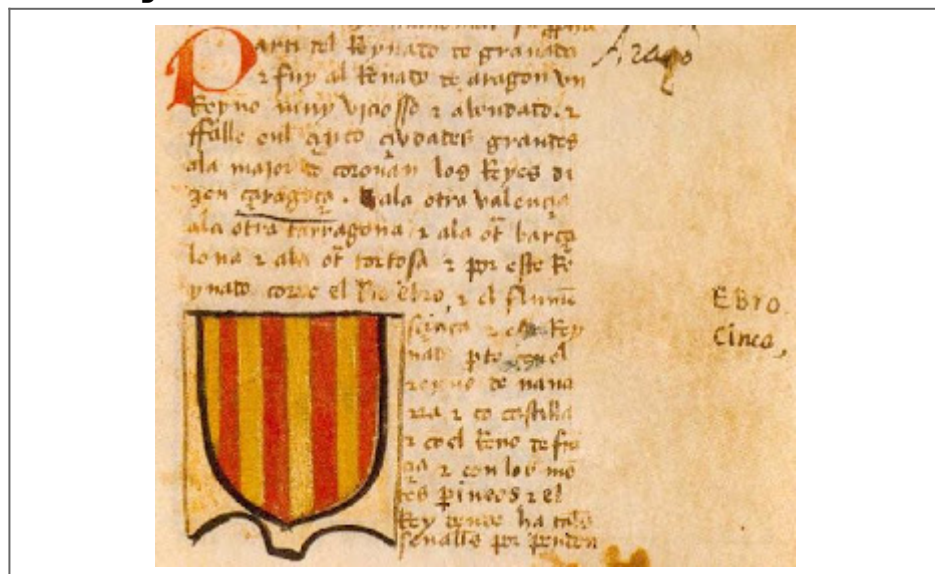 Parti del Reynado de granada
Aragō
z fuy al Renado de aragon vn
Reyno muy viciosso z abondado. z
ffalle enl çinco çivdades grandes
ala major do coronan los Reyes di
zen çaragoça. z ala otra valençia
ala otra tarragona z ala ot barça
lona z ala ot tortosa z por este Re
ynado corre el Rio ebro, z el flumē
EBro.
Cinca,
z el Rey
nado pte con el
reyno de nava
rra z co castilla
z co el Reno de frā
çia z con los mō
tes pineos z el
Rey dende ha tales
señalls por pendon